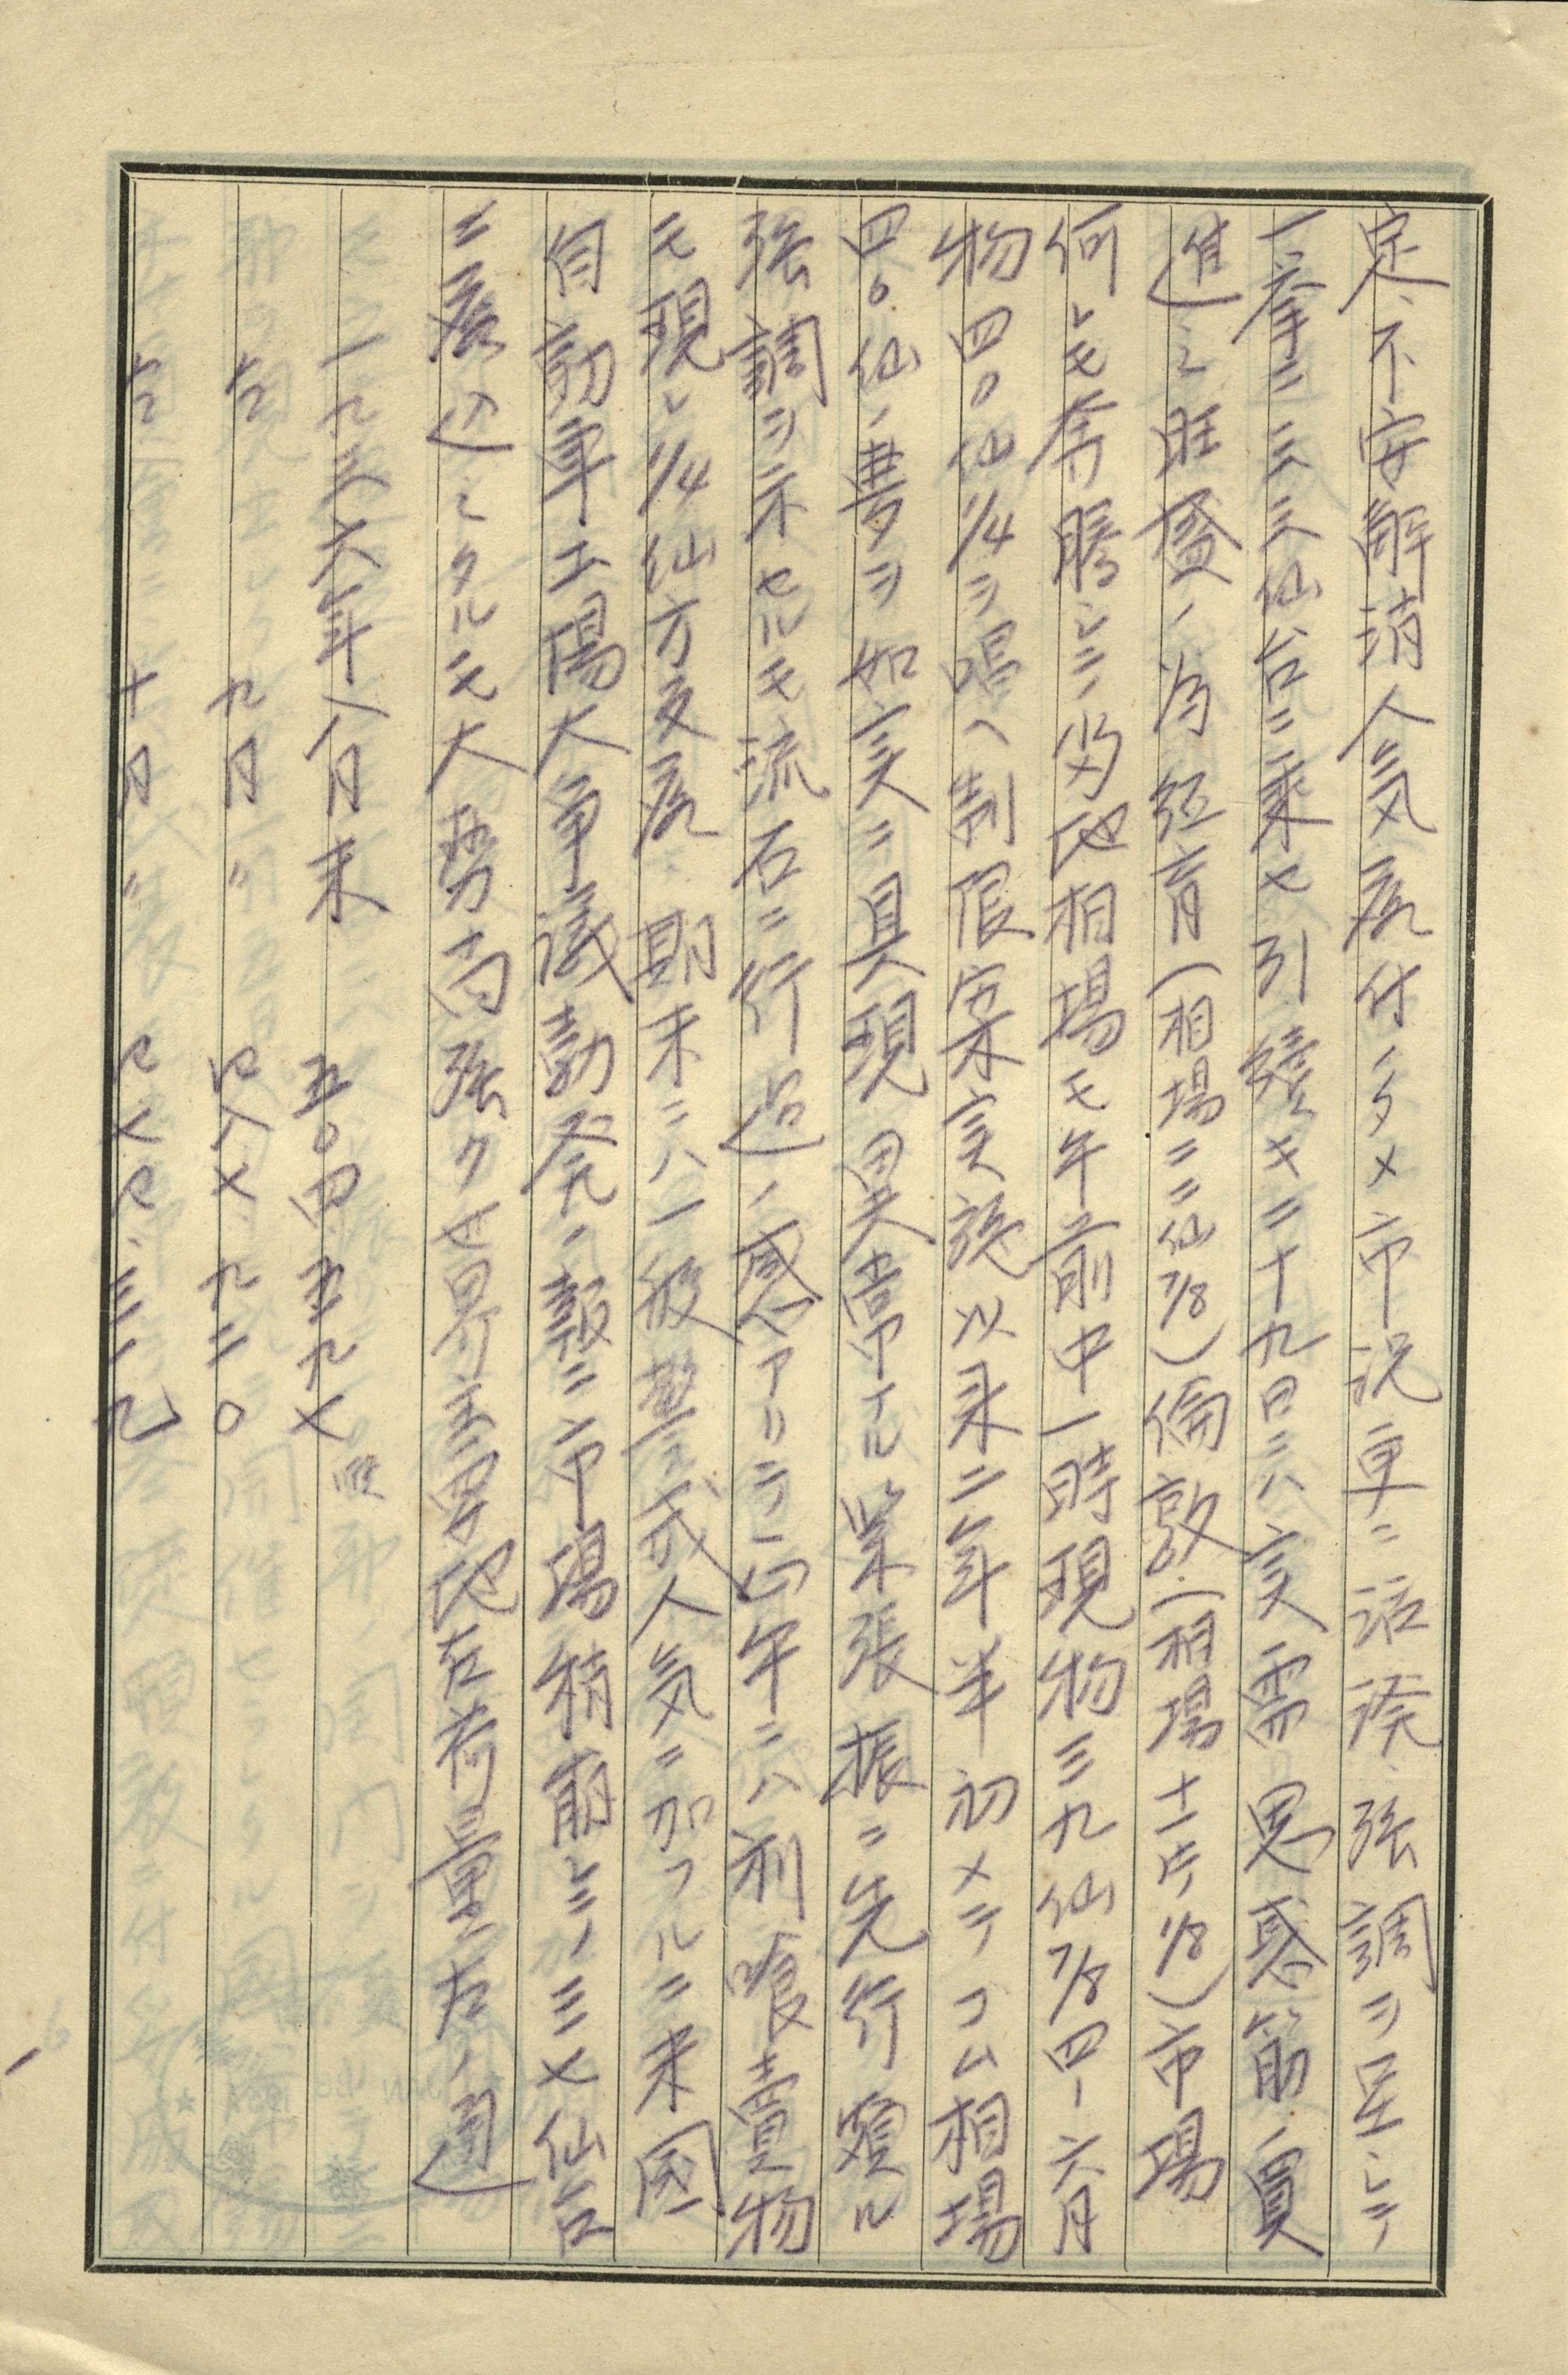 定、不安解消人気戻付ノタメ市況更ニ活溌、強調ヲ呈シテ
一挙ニ三三仙台ニ乗セ引続キ二十九日ニハ実需思惑筋ノ買
進ミ旺盛ノ為紐育(相場二二仙7/8)倫敦(相場十一片1/8)市場
何レモ奔騰シテ当地相場モ午前中一時現物三九仙7/8四ー六月
物四〇仙1/4ヲ唱ヘ制限案実施以来二年半初メテノコム相場
四〇仙ノ夢ヲ如実ニ具現異常ナル緊張振ニ先行頗ル
強調ヲ示セルモ流石ニ行過ノ感アリテ正午ニハ利喰売物
モ現レ1/4仙方反落期末ニハ一般警戒人気ニ加フルニ米国
自動車工場大争議勃発ノ報ニ市場稍崩レテ三七仙台
ニ落込ミタルモ大勢尚強ク世界主要地在荷量左ノ通
一九三六年八月末 五〇四、五九七 噸
〃 九月 〃 四八七、九二〇
〃 十月 〃 四七四、三一九